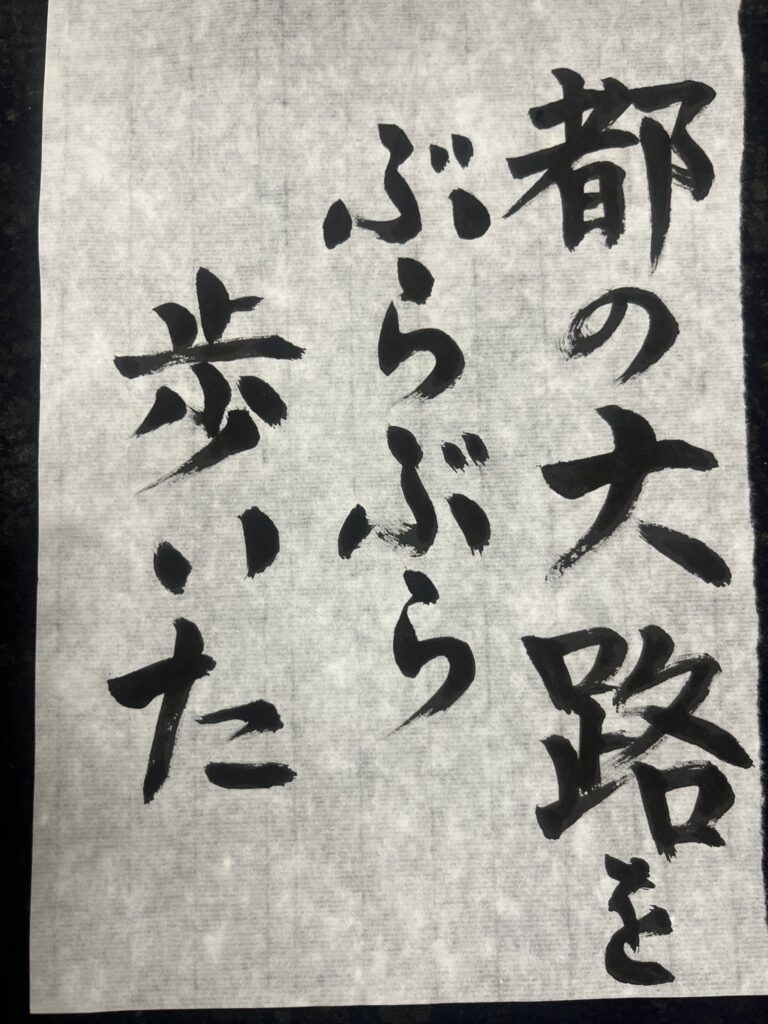 都の大路を
ぶらぶら
歩いた